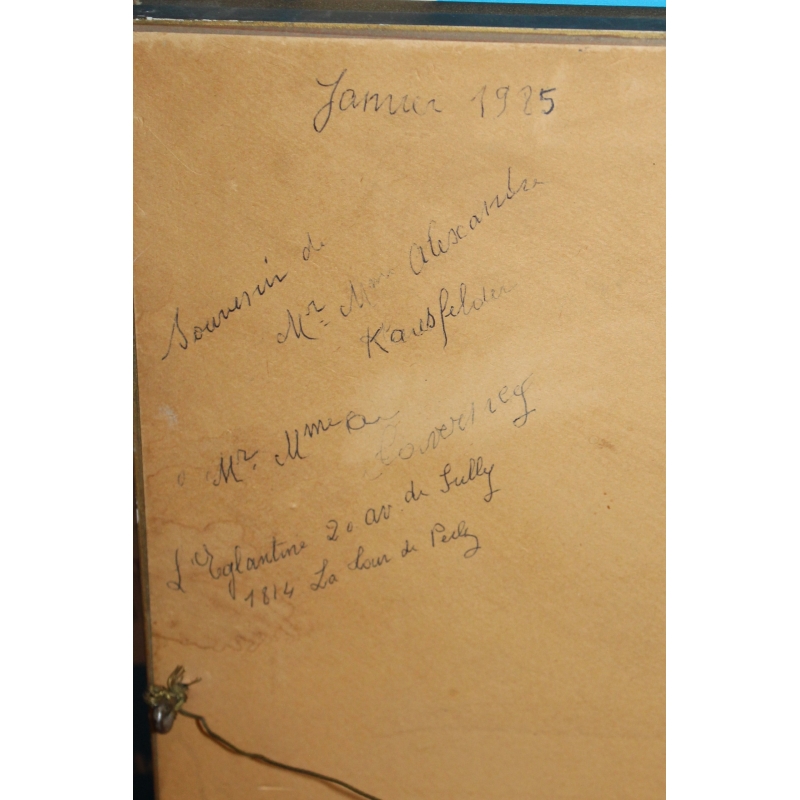 Janvier 1985
Souvenir de
Mr. Mme Alexandre
Kausfelder
à Mr. Mme
L'Eglantine 20 av. de Sully
1814 La Tour de Peilz